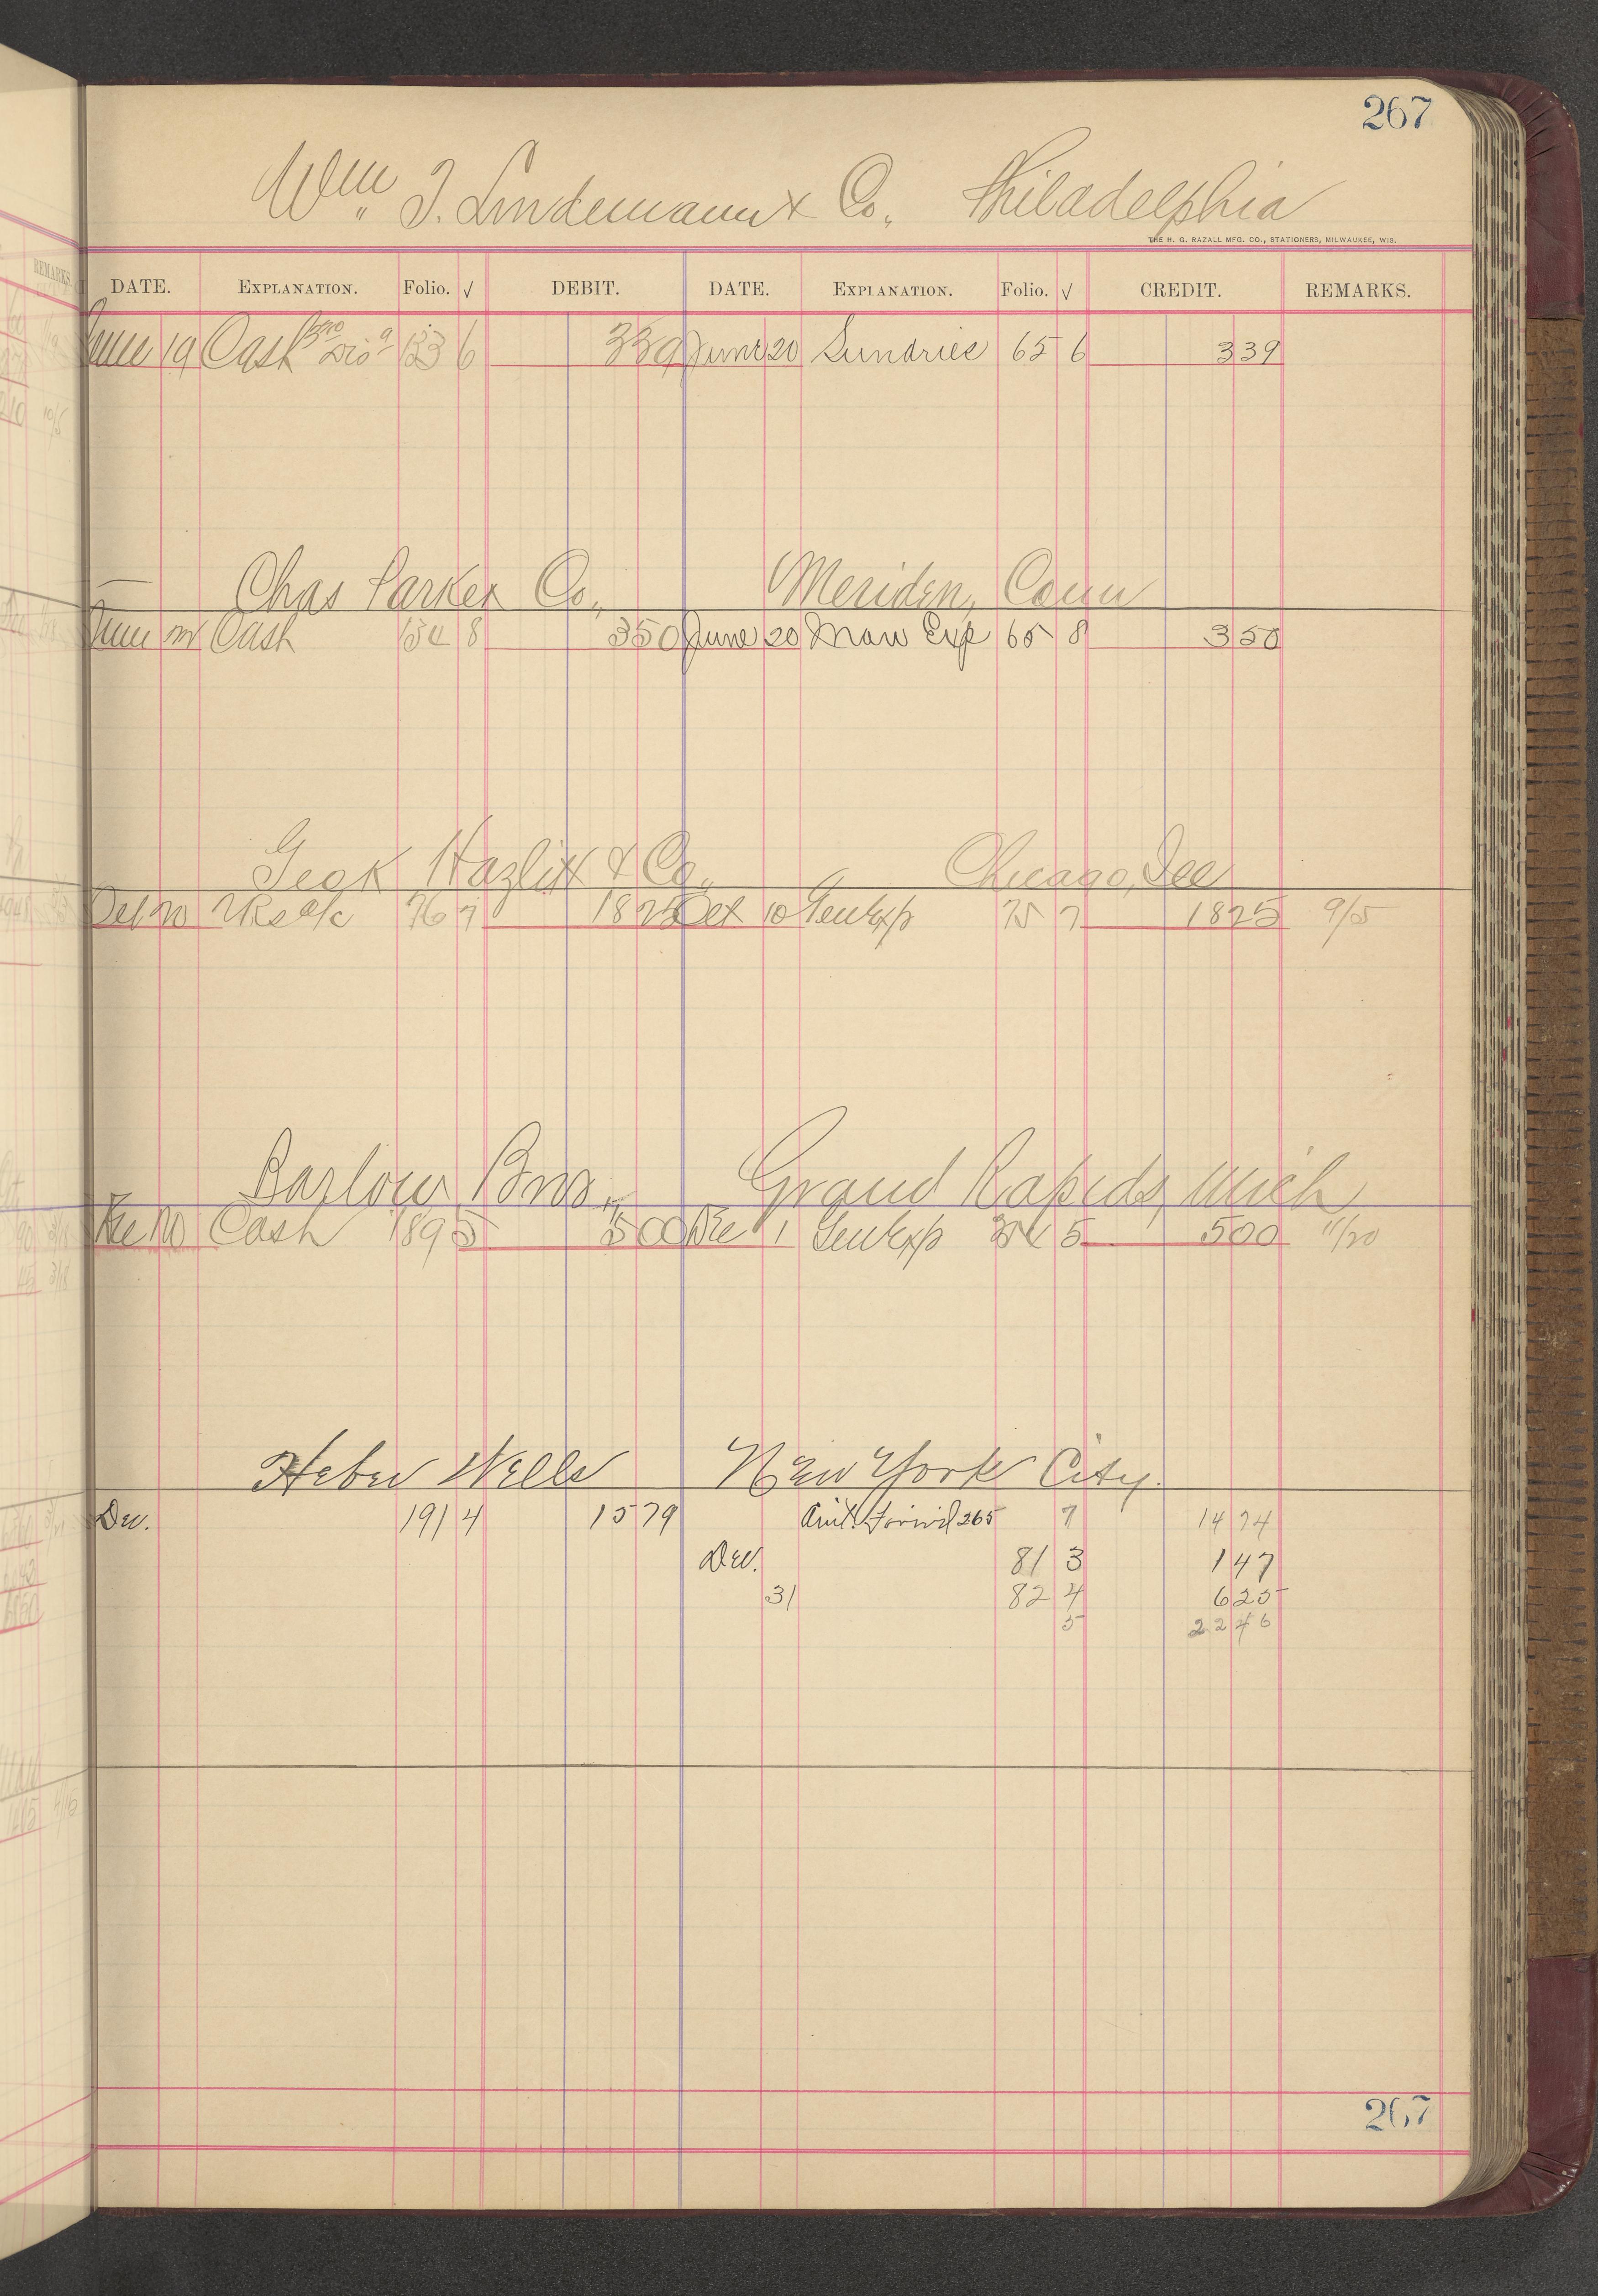 267
Wm. J. Lindemann & Co. Philadelphia
THE H. G. RAZALL MFG. CO., STATIONERS, MILWAUKEE, WIS.
DATE. EXPLANATION. Folio. √ DEBIT. DATE. EXPLANATION. Folio. √ CREDIT. REMARKS.
June 19 Cash 133 6 339 June 20 Sundries 65 6 339
Chas Parker Co., Meriden, Conn
June Cash 134 8 350 June 20 Man Exp 65 8 350
Geo K Hazlitt & Co., Chicago, Ill
Oct 20 76 7 1825 Oct 10 Gen Exp 75 7 1825 9/5
Barlow Bros., Grand Rapids, Mich
Dec 10 Cash 189 5 500 Dec 1 Gen Exp 5 500 11/20
Heber Wells New York City.
Dec. 191 4 1579 Amt. Forw'd 265 7 1474
Dec. 81 3 147
31 82 4 625
5 2246
267